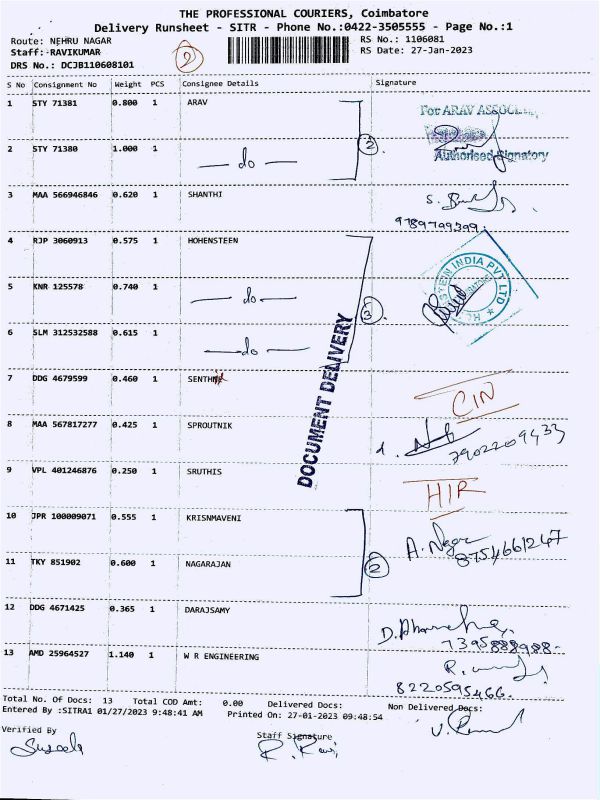 THE PROFESSIONAL COURIERS, Coimbatore
Delivery Runsheet - SITR - Phone No.:0422-3505555 - Page No.:1
Route: NEHRU NAGAR RS No.: 1106081
Staff: RAVIKUMAR 2 RS Date: 27-Jan-2023
DRS No.: DCJB110608101
S No Consignment No Weight PCS Consignee Details Signature
1 STY 71381 0.800 1 ARAV For ARAV
2 STY 71380 1.000 1 — do — 2 Authorised Signatory
3 MAA 566946846 0.620 1 SHANTHI S.
9789799399
4 RJP 3060913 0.575 1 HOHENSTEEN
5 KNR 125578 0.740 1 — do — 3 INDIA PVT LTD
6 SLM 312532588 0.615 1 — do —
DOCUMENT DELIVERY
7 DDG 4679599 0.460 1 CIN
8 MAA 567817277 0.425 1 SPROUTNIK 7902209433
9 VPL 401246876 0.250 1 SRUTHIS HIR
10 JPR 100009071 0.555 1 KRISNMAVENI A. Nagar
8754661247
11 TKY 851902 0.600 1 NAGARAJAN 2
12 DDG 4671425 0.365 1 DARAJSAMY D.
7395888988
13 AMD 25964527 1.140 1 W R ENGINEERING R.
8220595466
Total No. Of Docs: 13 Total COD Amt: 0.00 Delivered Docs: Non Delivered Docs:
Entered By :SITRA1 01/27/2023 9:48:41 AM Printed On: 27-01-2023 09:48:54
Verified By Staff Signature
R. Ravi